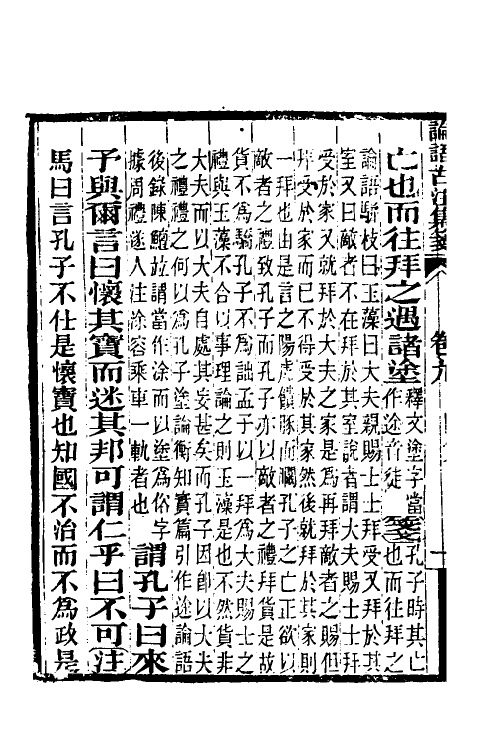 論語古注集箋 卷九
亡也而往拜之遇諸塗釋文塗字當作途音徒箋孔子時其亡也而往拜之
論語駢枝曰玉藻曰大夫親賜士士拜受又拜於其
室又曰敵者不在拜於其室說者謂大夫賜士士拜
受於家又就拜於大夫之家是為再拜敵者之賜但
拜受於家而已不得受於其家然後就拜於其家則
一拜也由是言之陽虎饋豚而矙孔子之亡正欲以
敵者之禮致孔子而孔子亦以敵者之禮拜貨是故
貨不為驕孔子不為詘孟子以一拜為大夫賜士之
禮與玉藻不合以事理論之則玉藻是也不然貨非
大夫而以大夫自處其妄甚矣而孔子因卽以大夫
之禮禮之何以為孔子塗論衡知實篇引作途論語
後錄陳鱣竝謂當作涂而以塗為俗字
據周禮遂人注涂容乘車一軌者也謂孔子曰來
予與爾言曰懷其寶而迷其邦可謂仁乎曰不可注
馬曰言孔子不仕是懷寶也知國不治而不為政是